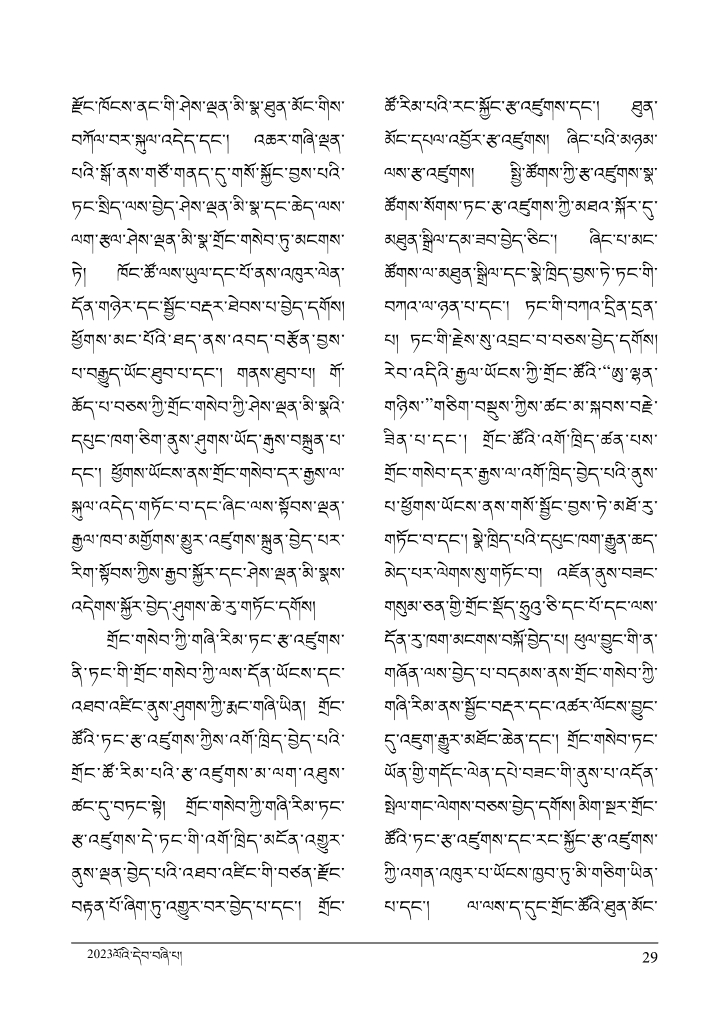 རྫོང་ཁོངས་ནང་གི་ཤེས་ལྡན་མི་སྣ་ཐུན་མོང་གིས་
བཀོལ་བར་སྐུལ་འདེད་དང་། འཆར་གཞི་ལྡན་
པའི་སྒོ་ནས་གཙོ་གནད་དུ་གསོ་སྐྱོང་བྱས་པའི་
ཏང་སྲིད་ལས་བྱེད་ཤེས་ལྡན་མི་སྣ་དང་ཆེད་ལས་
ལག་རྩལ་ཤེས་ལྡན་མི་སྣ་གྲོང་གསེབ་ཏུ་མངགས་
ཏེ། ཁོང་ཚོ་ལས་ཡུལ་དང་པོ་ནས་འཁུར་ལེན་
དོན་གཉེར་དང་སྦྱོང་བརྡར་ཐེབས་པ་བྱེད་དགོས།
ཕྱོགས་མང་པོའི་ཐད་ནས་འབད་བརྩོན་བྱས་
པ་བརྒྱུད་ཡོང་ཐུབ་པ་དང་། གནས་ཐུབ་པ། གོ་
ཆོད་པ་བཅས་ཀྱི་གྲོང་གསེབ་ཀྱི་ཤེས་ལྡན་མི་སྣའི་
དཔུང་ཁག་ཅིག་ནུས་ཤུགས་ཡོད་རྒུས་བསྐྲུན་པ་
དང་། ཕྱོགས་ཡོངས་ནས་གྲོང་གསེབ་དར་རྒྱས་ལ་
སྐུལ་འདེད་གཏོང་བ་དང་ཞིང་ལས་སྟོབས་ལྡན་
རྒྱལ་ཁབ་མགྱོགས་མྱུར་འཛུགས་སྐྲུན་བྱེད་པར་
རིག་སྟོབས་ཀྱིས་རྒྱབ་སྐྱོར་དང་ཤེས་ལྡན་མི་སྣས་
འདེགས་སྐྱོར་བྱེད་ཤུགས་ཆེ་རུ་གཏོང་དགོས།
གྲོང་གསེབ་ཀྱི་གཞི་རིམ་ཏང་རྩ་འཛུགས་
ནི་ཏང་གི་གྲོང་གསེབ་ཀྱི་ལས་དོན་ཡོངས་དང་
འཐབ་འཛིང་ནུས་ཤུགས་ཀྱི་རྨང་གཞི་ཡིན། གྲོང་
ཚོའི་ཏང་རྩ་འཛུགས་ཀྱིས་འགོ་ཁྲིད་བྱེད་པའི་
གྲོང་ཚོ་རིམ་པའི་རྩ་འཛུགས་མ་ལག་འཐུས་
ཚང་དུ་བཏང་སྟེ། གྲོང་གསེབ་ཀྱི་གཞི་རིམ་ཏང་
རྩ་འཛུགས་དེ་ཏང་གི་འགོ་ཁྲིད་མངོན་འགྱུར་
ནུས་ལྡན་བྱེད་པའི་འཐབ་འཛིང་གི་བཙན་རྫོང་
བརྟན་པོ་ཞིག་ཏུ་འགྱུར་བར་བྱེད་པ་དང་། གྲོང་
ཚོ་རིམ་པའི་རང་སྐྱོང་རྩ་འཛུགས་དང་། ཐུན་
མོང་དཔལ་འབྱོར་རྩ་འཛུགས། ཞིང་པའི་མཉམ་
ལས་རྩ་འཛུགས། སྤྱི་ཚོགས་ཀྱི་རྩ་འཛུགས་སྣ་
ཚོགས་སོགས་ཏང་རྩ་འཛུགས་ཀྱི་མཐའ་སྐོར་དུ་
མཐུན་སྒྲིལ་དམ་ཟབ་བྱེད་ཅིང་། ཞིང་པ་མང་
ཚོགས་ལ་མཐུན་སྒྲིལ་དང་སྣེ་ཁྲིད་བྱས་ཏེ་ཏང་གི་
བཀའ་ལ་ཉན་པ་དང་། ཏང་གི་བཀའ་དྲིན་དྲན་
པ། ཏང་གི་རྗེས་སུ་འབྲང་བ་བཅས་བྱེད་དགོས།
རེབ་འདིའི་རྒྱལ་ཡོངས་ཀྱི་གྲོང་ཚོའི་“ཨུ་ལྷན་
གཉིས་”གཅིག་བསྡུས་ཀྱིས་ཚང་མ་སྐབས་བརྗེ་
ཟིན་པ་དང་། གྲོང་ཚོའི་འགོ་ཁྲིད་ཚན་པས་
གྲོང་གསེབ་དར་རྒྱས་ལ་འགོ་ཁྲིད་བྱེད་པའི་ནུས་
པ་ཕྱོགས་ཡོངས་ནས་གསོ་སྦྱོང་བྱས་ཏེ་མཐོ་རུ་
གཏོང་བ་དང་། སྣེ་ཁྲིད་པའི་དཔུང་ཁག་རྒྱུན་ཆད་
མེད་པར་ལེགས་སུ་གཏོང་བ། འཇོན་ནུས་བཟང་
གསུམ་ཅན་གྱི་གྲོང་སྡོད་ཧྲུའུ་ཅི་དང་པོ་དང་ལས་
དོན་རུ་ཁག་མངགས་བསྐོ་བྱེད་པ། ཕུལ་བྱུང་གི་ན་
གཞོན་ལས་བྱེད་པ་བདམས་ནས་གྲོང་གསེབ་ཀྱི་
གཞི་རིམ་ནས་སྦྱོང་བརྡར་དང་འཚར་ལོངས་བྱུང་
དུ་འཇུག་རྒྱུར་མཐོང་ཆེན་དང་། གྲོང་གསེབ་ཏང་
ཡོན་གྱི་གདོང་ལེན་དཔེ་བཟང་གི་ནུས་པ་འདོན་
སྤེལ་གང་ལེགས་བཅས་བྱེད་དགོས། མིག་སྔར་གྲོང་
ཚོའི་ཏང་རྩ་འཛུགས་དང་རང་སྐྱོང་རྩ་འཛུགས་
ཀྱི་འགན་འཁུར་པ་ཡོངས་ཁྱབ་ཏུ་མི་གཅིག་ཡིན་
པ་དང་། ལ་ལས་ད་དུང་གྲོང་ཚོའི་ཐུན་མོང་
2023ལོའི་དེབ་བཞི་པ།
29